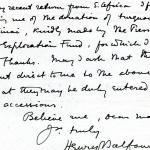 y recent return from S. Africa I f
me of the donation of
kindly made by the
Exploration Fund, for which I
Thanks. May I ask that the
direct to me to the above
that they may be duly entered
accessions.
Believe me, dear
Yrs truly
Henry Balfour